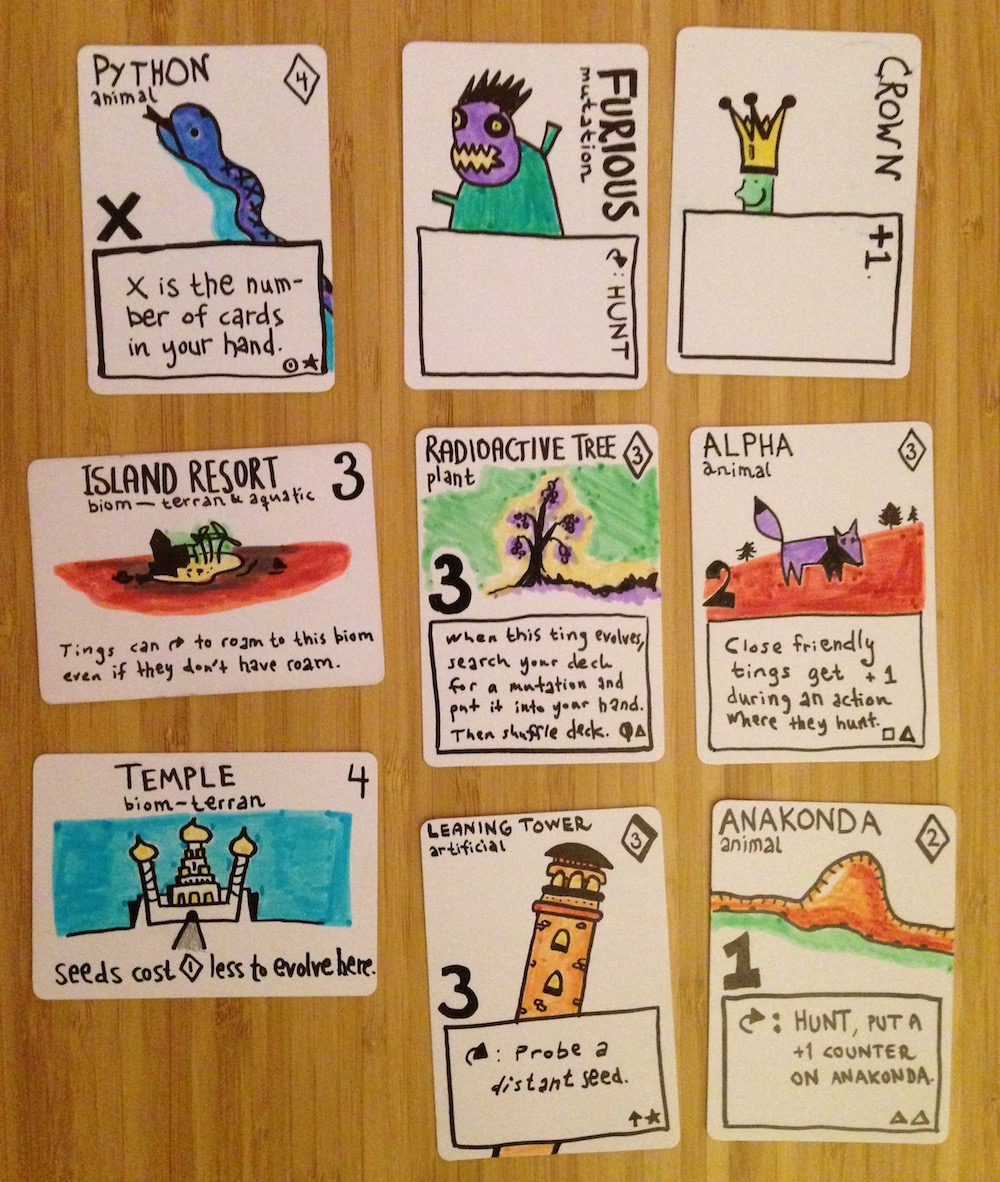 PYTHON
animal
4
X
X is the num-
ber of cards
in your hand.
FURIOUS
mutation
: HUNT
CROWN
+1.
ISLAND RESORT
3
biom — terran & aquatic
Tings can ↱ to roam to this biom
even if they don't have roam.
RADIOACTIVE TREE
3
plant
3
When this ting evolves,
search your deck
for a mutation and
put it into your hand.
Then shuffle deck.
ALPHA
animal
3
2
Close friendly
tings get +1
during an action
where they hunt.
TEMPLE
4
biom-terran
seeds cost 1 less to evolve here.
LEANING TOWER
artificial
3
3
: Probe a
distant seed.
ANAKONDA
animal
2
1
: HUNT, PUT A
+1 COUNTER
ON ANAKONDA.